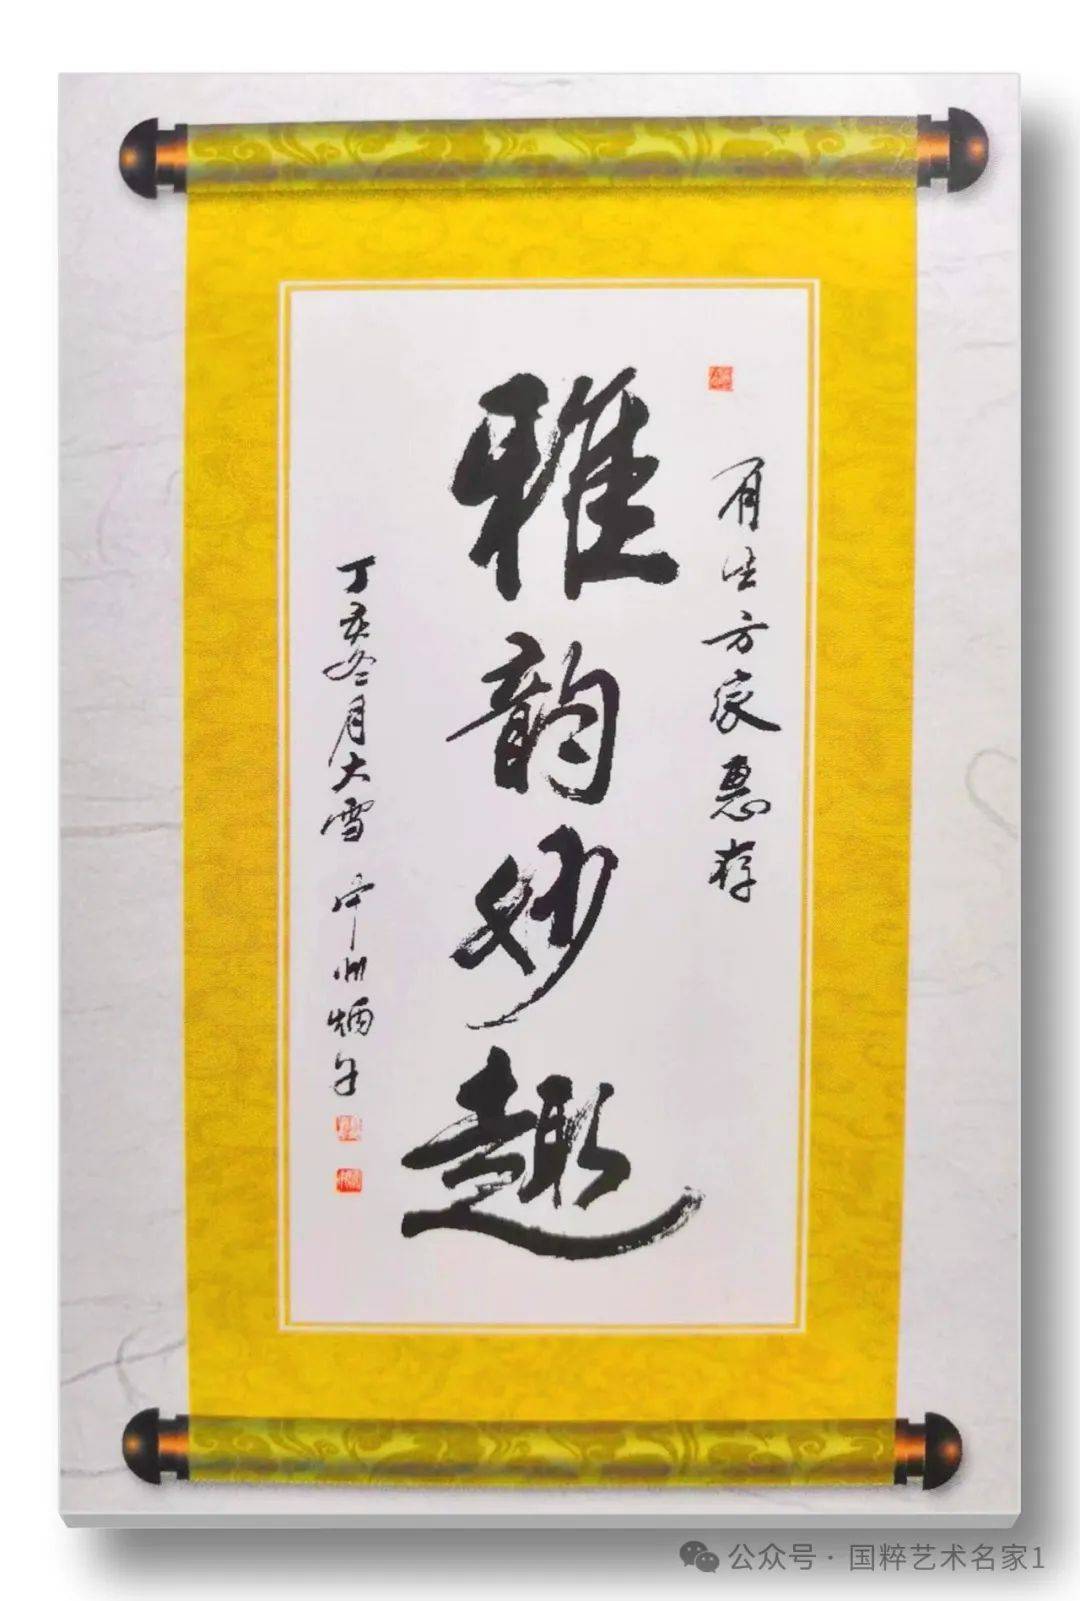 有生方家惠存
雅韵妙趣
丁亥冬月大雪 中州炳午
公众号·国粹艺术名家1